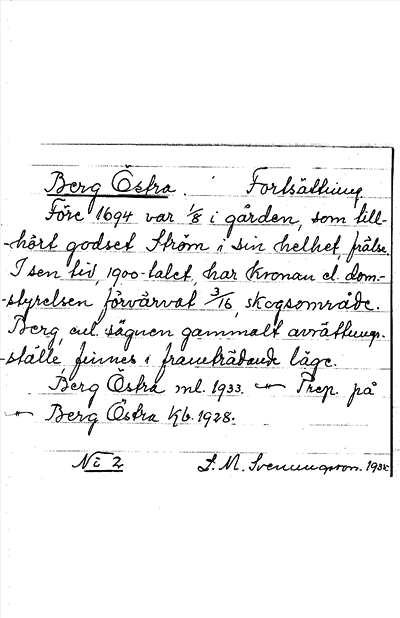 Berg Östra. Fortsättning
Före 1694 var 1/8 i gården, som till-
-hört godset Ström i sin helhet, frälse.
I sen tid, 1900-talet, har Kronan el. dom-
-styrelsen förvärvat 3/16, skogsområde.
Berg, enl. sägnen gammalt avrättnings-
-ställe, finnes i framträdande läge.
Berg Östra ml. 1933. —"— Prep. på
—"— Berg Östra Kb. 1928.
No 2 S. M. Svenungsson. 193